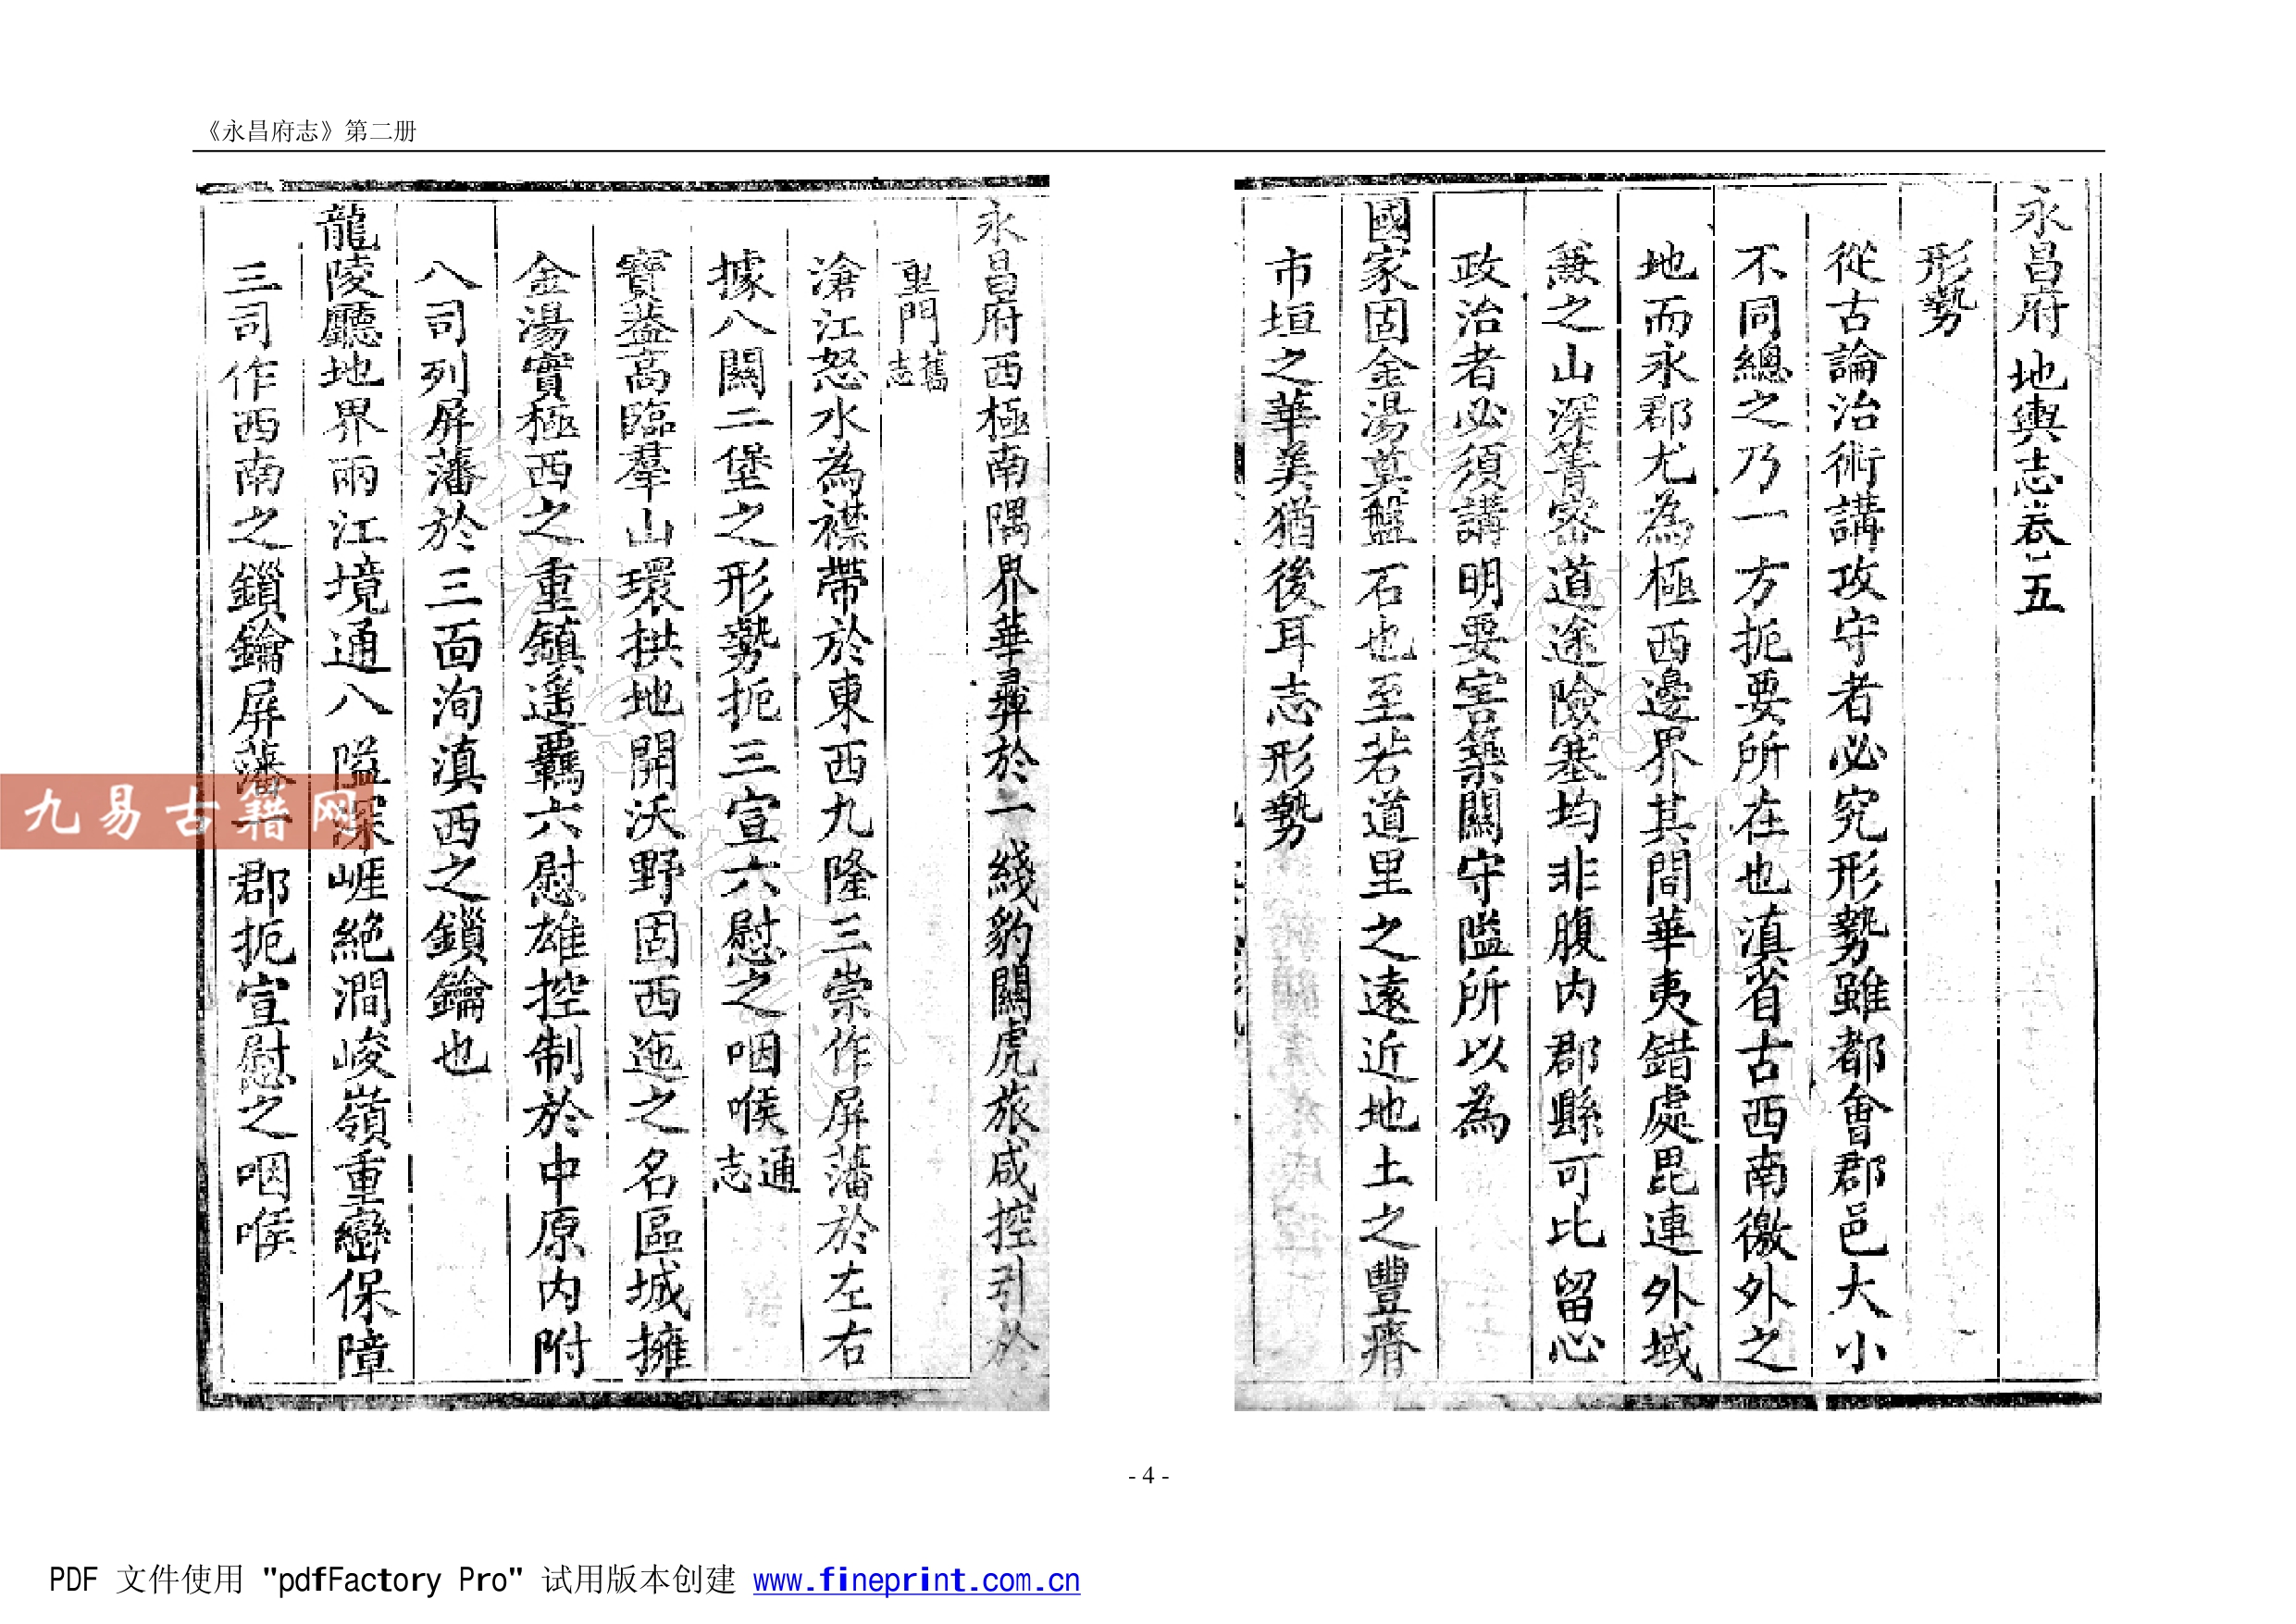 《永昌府志》第二册
永昌府地輿志卷五
形勢
從古論治術講攻守者必究形勢雖都會郡邑大小
不同總之乃一方扼要所在也滇省古西南徼外之
地而永郡尤為極西邊界其間華夷錯處毘連外域
兼之山深箐密道途險塞均非腹内郡縣可比留心
政治者必須講明要害築關守隘所以為
國家固金湯奠盤石也至若道里之遠近地土之豐瘠
市垣之華美猶後耳志形勢
永昌府西極南隅界華彞於一綫豹關虎旅咸控引於
重門舊志
滄江怒水為襟帶於東西九隆三崇作屏藩於左右
據八關二堡之形勢扼三宣六慰之咽喉通志
寶蓋高臨羣山環拱地開沃野固西迤之名區城擁
金湯實極西之重鎮遥羈六慰雄控制於中原内附
八司列屏藩於三面洵滇西之鎖鑰也
龍陵廳地界兩江境通八隘深崕絶澗峻嶺重巒保障
三司作西南之鎖鑰屏藩一郡扼宣慰之咽喉
九易古籍网
- 4 -
PDF 文件使用 "pdfFactory Pro" 试用版本创建 www.fineprint.com.cn